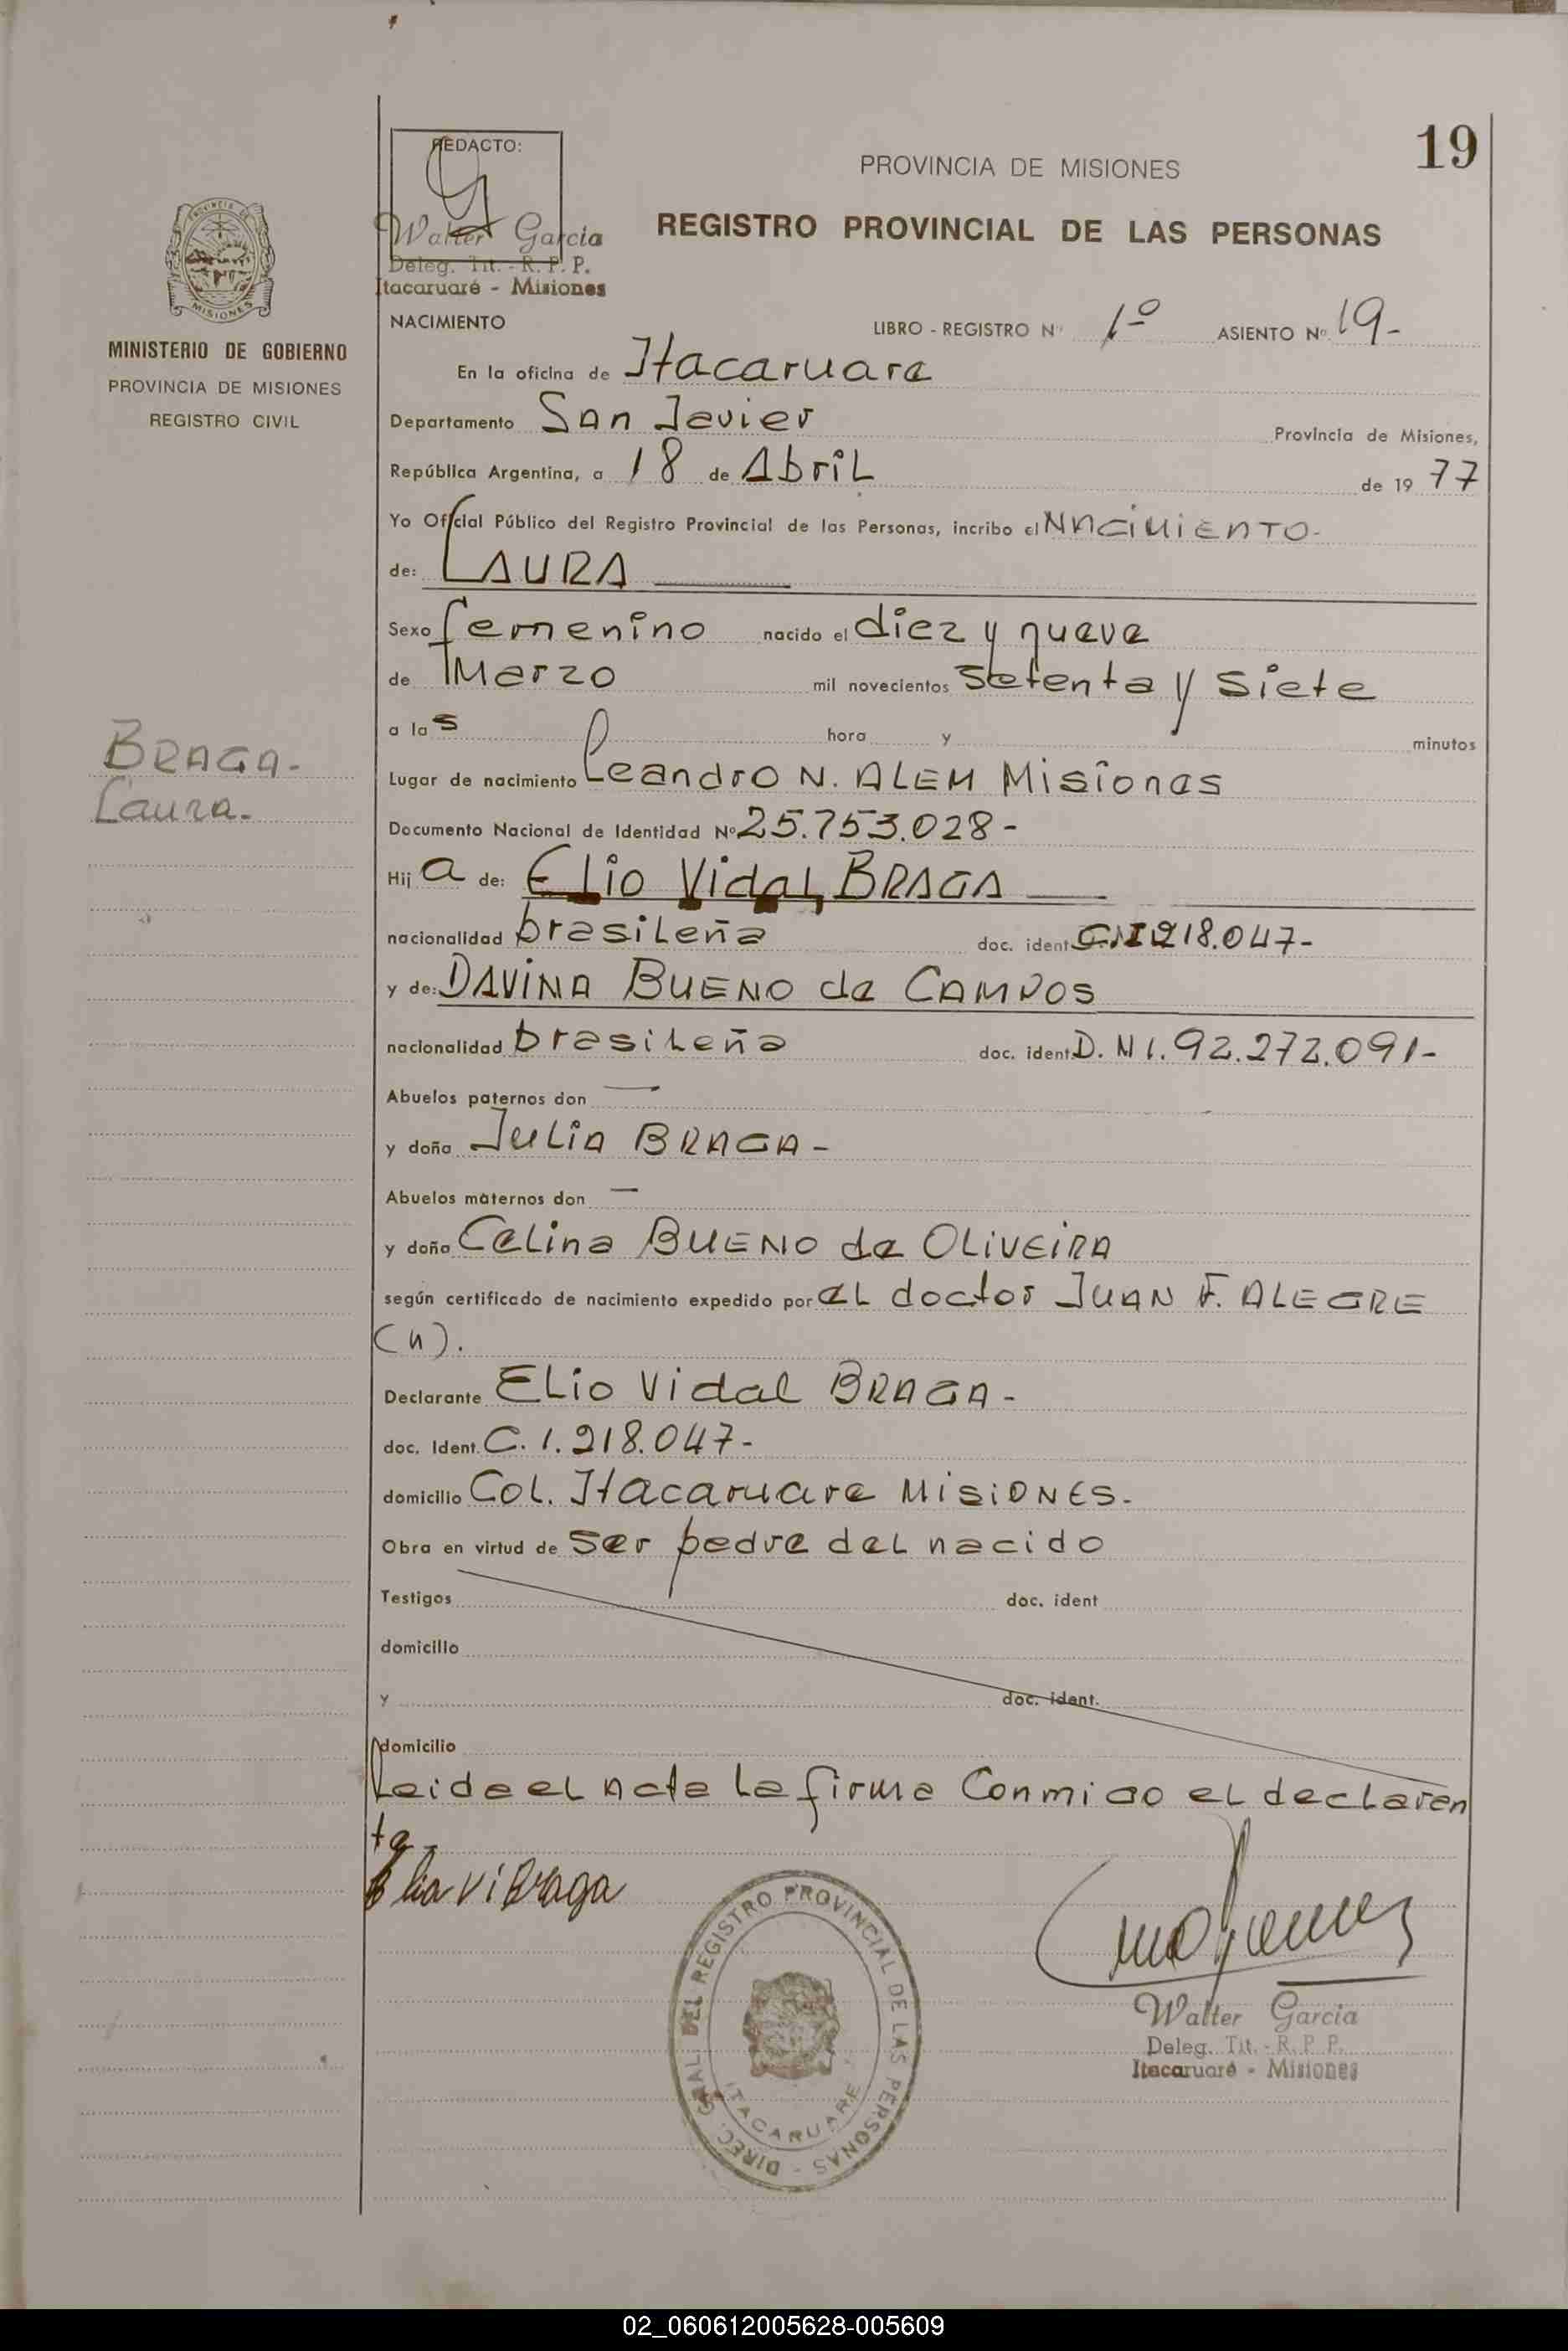 19
REDACTO:
Walter Garcia
Deleg. Tit. - R. P. P.
Itacaruaré - Misiones
PROVINCIA DE MISIONES
REGISTRO PROVINCIAL DE LAS PERSONAS
PROVINCIA DE
MISIONES
MINISTERIO DE GOBIERNO
PROVINCIA DE MISIONES
REGISTRO CIVIL
NACIMIENTO LIBRO - REGISTRO Nº 1º ASIENTO Nº 19-
En la oficina de Itacaruare
Departamento San Javier Provincia de Misiones,
República Argentina, a 18 de Abril de 19 77
Yo Oficial Público del Registro Provincial de las Personas, incribo el Nacimiento-
de: LAURA
Sexo femenino nacido el diez y nueve
de Marzo mil novecientos setenta y siete
a las hora y minutos
BRAGA-
Laura.
Lugar de nacimiento Leandro N. ALEM Misiones
Documento Nacional de Identidad Nº 25.753.028-
Hija de: Elio Vidal BRAGA
nacionalidad brasileña doc. ident 218.047-
y de: DAVINA BUENO de CAMPOS
nacionalidad brasileña doc. ident D. N I. 92.272.091-
Abuelos paternos don —
y doña Julia BRAGA-
Abuelos maternos don —
y doña Celina BUENO de OLIVEIRA
según certificado de nacimiento expedido por el doctor JUAN F. ALEGRE
(h).
Declarante Elio Vidal BRAGA-
doc. Ident. C. I. 218.047-
domicilio Col. Itacaruare MISIONES-
Obra en virtud de ser padre del nacido
Testigos doc. ident
domicilio
y doc. ident.
domicilio
Leida el Acta la firma Conmigo el declaran
te
Elio Vi Braga
DIREC. GRAL. DEL REGISTRO PROVINCIAL DE LAS PERSONAS -
ITACARUARE
Walter Garcia
Deleg. Tit. - R. P. P.
Itacaruaré - Misiones
02_060612005628-005609